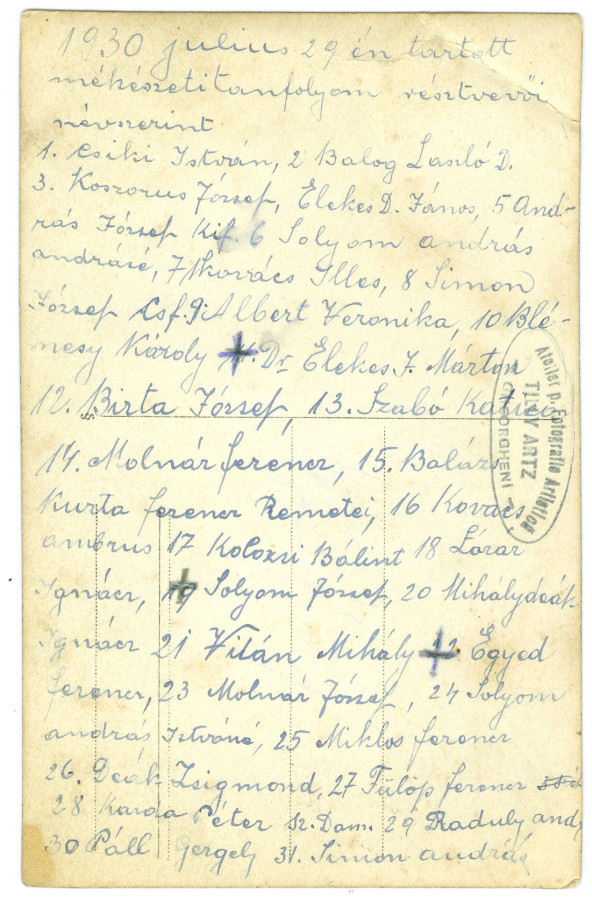 1930 julius 29 én tartott
méhészeti tanfolyam résztvevői
névszerint
1. Csiki István, 2 Balog László D.
3. Koszorus József, Elekes D. János, 5 And-
rás József Kif. 6 Solyom andrás
andrásé, 7 Kovács Illes, 8 Simon
József Csf. 9. Albert Veronika, 10 Blé-
nesy Károly Dr Elekes J. Márton
12. Birta József, 13. Szabó
14. Molnár ferencz, 15. Balázs
Kurta ferencz Remetei, 16 Kovács
ambrus 17 Kolozsi Bálint 18 Lázár
Ignácz, 19 Solyom József, 20 Mihálydeák
Ignácz 21 Vitán Mihály 22. Egyed
ferencz, 23 Molnár József, 24 Solyom
andrás Istváné, 25 Miklos ferencz
26. Deák Zsigmond, 27 Fülöp ferencz
28 Karda Péter Sz. Dom. 29 Raduly andr
30 Páll Gergely 31. Simon andrás
Atelier p. Fotografie Artistica
TILLY ARTZ
GHEORGHENI